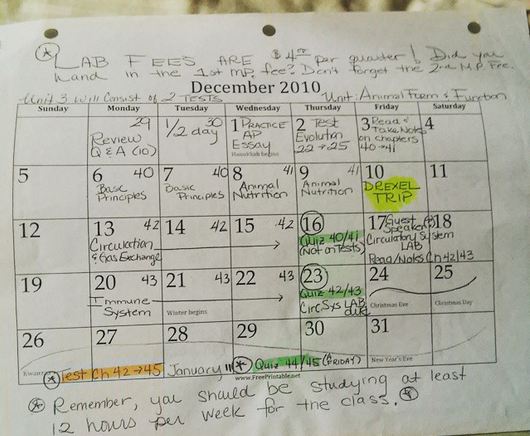 * LAB FEES ARE $4.00 per quarter! Did you
hand in the 1st M.P. fee? Don't forget the 2nd M.P. Fee.
December 2010
Unit 3 will consist of 2 TESTS Unit: Animal Form & Function
Sunday Monday Tuesday Wednesday Thursday Friday Saturday
29 Review Q & A (10)
30 1/2 day
1 PRACTICE AP Essay Hanukkah begins
2 Test Evolution 22→25
3 Read & Take Notes on chapters 40→41
4
5
6 40 Basic Principles
7 40 Basic Principles
8 41 Animal Nutrition
9 41 Animal Nutrition
10 DREXEL TRIP
11
12
13 42 Circulation & Gas Exchange
14 42
15 42
16 Quiz 40/41 (Not on Tests)
17 Guest Speaker Circulatory System LAB Read/Notes Ch 42/43
18
19
20 43 Immune System
21 43 Winter begins
22 43
23 Quiz 42/43 Circ Sys LAB due
24 Christmas Eve
25 Christmas Day
26
27
28
29
30
31 New Year's Eve
* Test Ch 42→45 January * Quiz 44/45 (FRIDAY)
www.FreePrintable.net
* Remember, you should be studying at least
12 hours per week for the class. *